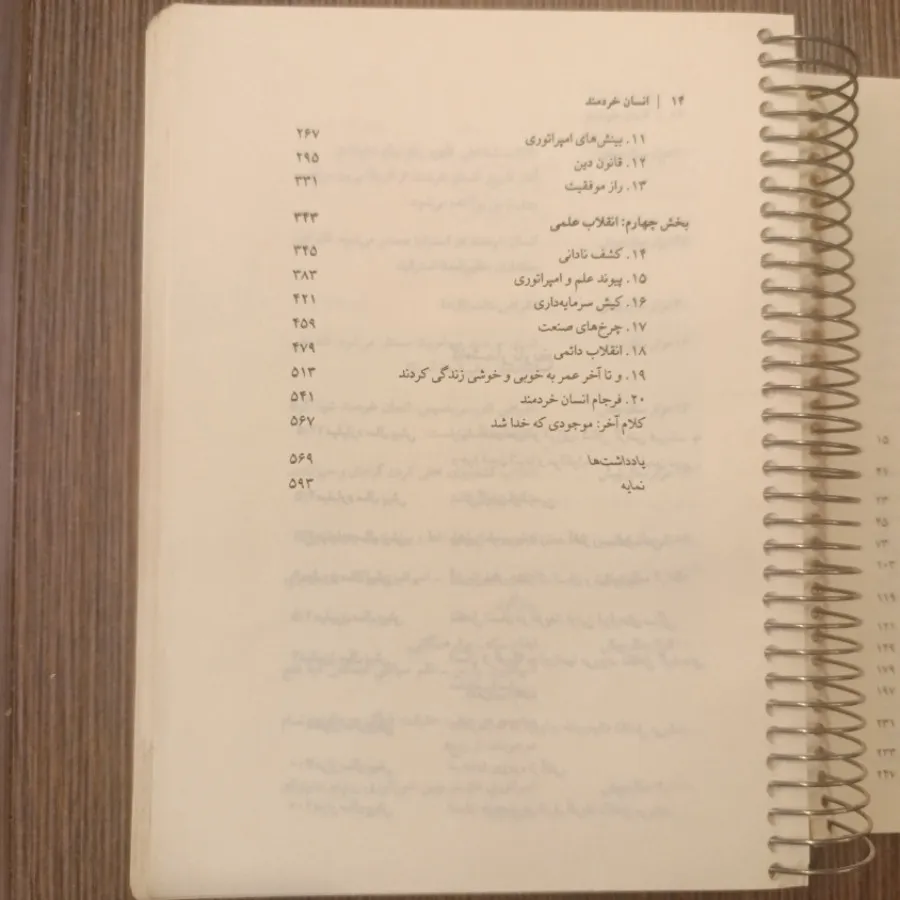 ۱۴ | انسان خردمند
۱۱. بینش‌های امپراتوری ۲۶۷
۱۲. قانون دین ۲۹۵
۱۳. راز موفقیت ۳۳۱
بخش چهارم: انقلاب علمی ۳۴۳
۱۴. کشف نادانی ۳۴۵
۱۵. پیوند علم و امپراتوری ۳۸۳
۱۶. کیش سرمایه‌داری ۴۲۱
۱۷. چرخ‌های صنعت ۴۵۹
۱۸. انقلاب دائمی ۴۷۹
۱۹. و تا آخر عمر به خوبی و خوشی زندگی کردند ۵۱۳
۲۰. فرجام انسان خردمند ۵۴۱
کلام آخر: موجودی که خدا شد ۵۶۷
یادداشت‌ها ۵۶۹
نمایه ۵۹۳
۱۵
۲۳
۲۵
۷۳
۱۰۳
۱۱۹
۱۳۶
۱۴۹
۱۷۹
۱۹۷
۲۳۱
۲۳۳
۲۴۷